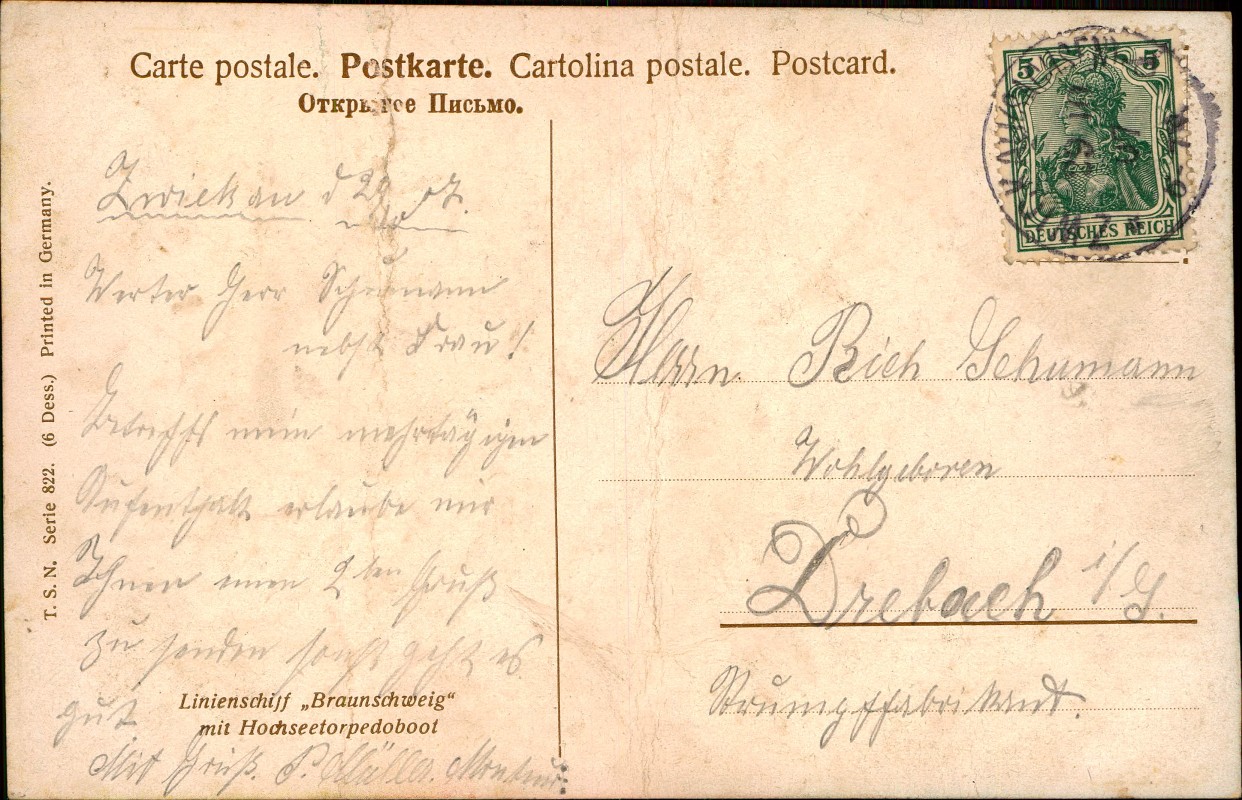 Carte postale. Postkarte. Cartolina postale. Postcard.
Открытое Письмо.
T. S. N. Serie 822. (6 Dess.) Printed in Germany.
Zwickau d 29 07.
Werter Herr Schumann
nebst Frau!
Betreffs mein mehrtägigen
Aufenthalt erlaube mir
Ihnen einen 2ten Gruß
zu senden sonst geht es
gut
Mit Gruß. P. Müller. Monteur.
Linienschiff „Braunschweig“
mit Hochseetorpedoboot
5 5
DEUTSCHES REICH
Herrn Rich Schumann
Wohlgeboren
Drebach i/G.
Strumpffabrikant.